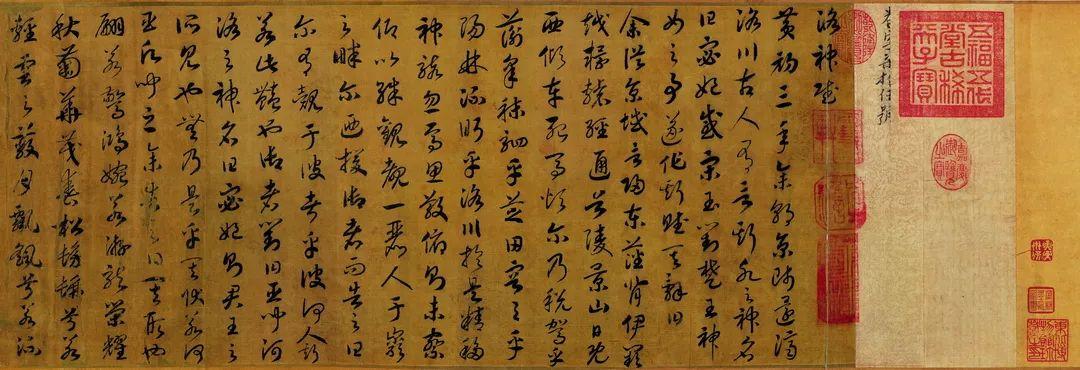 五福五代堂古稀天子寶
嘉慶御覽之寶
洛神賦
黃初三年余朝京師還濟
洛川古人有言斯水之神名
曰宓妃感宋玉對楚王神
女之事遂作斯賦其辭曰
余從京域言歸東藩背伊闕
越轘轅經通谷陵景山日既
西傾車殆馬煩爾乃稅駕乎
蘅皋秣駟乎芝田容與乎
陽林流眄乎洛川於是精移
神駭忽焉思散俯則未察
仰以殊觀覩一麗人于巖
之畔爾迺援御者而告之曰
爾有覿于彼者乎彼何人斯
若此豔也御者對曰臣聞河
洛之神名曰宓妃則君王之
所見也無乃是乎其狀若何
臣願聞之余告之曰其形也
翩若驚鴻婉若游龍榮耀
秋菊華茂春松髣髴兮若
輕雲之蔽月飄颻兮若流